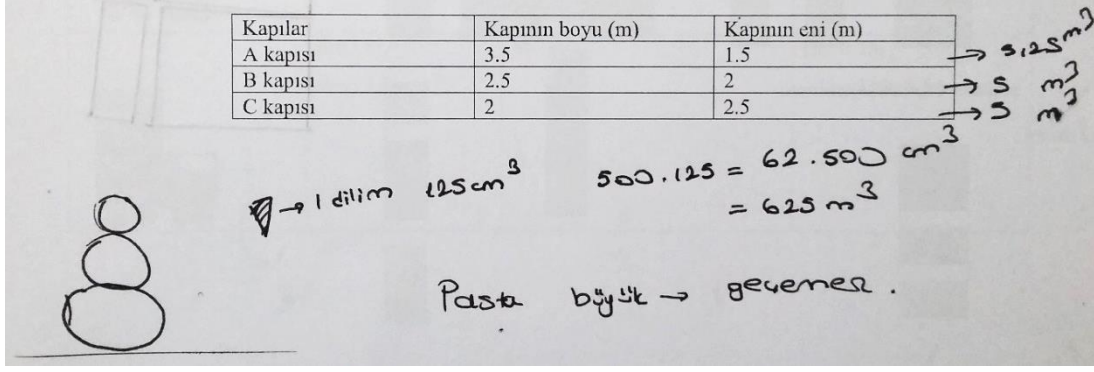 Kapılar Kapının boyu (m) Kapının eni (m)
A kapısı 3.5 1.5 → 5,25 m³
B kapısı 2.5 2 → 5 m³
C kapısı 2 2.5 → 5 m³
→ 1 dilim 125 cm³ 500.125 = 62.500 cm³
= 625 m³
Pasta büyük → geçemez.